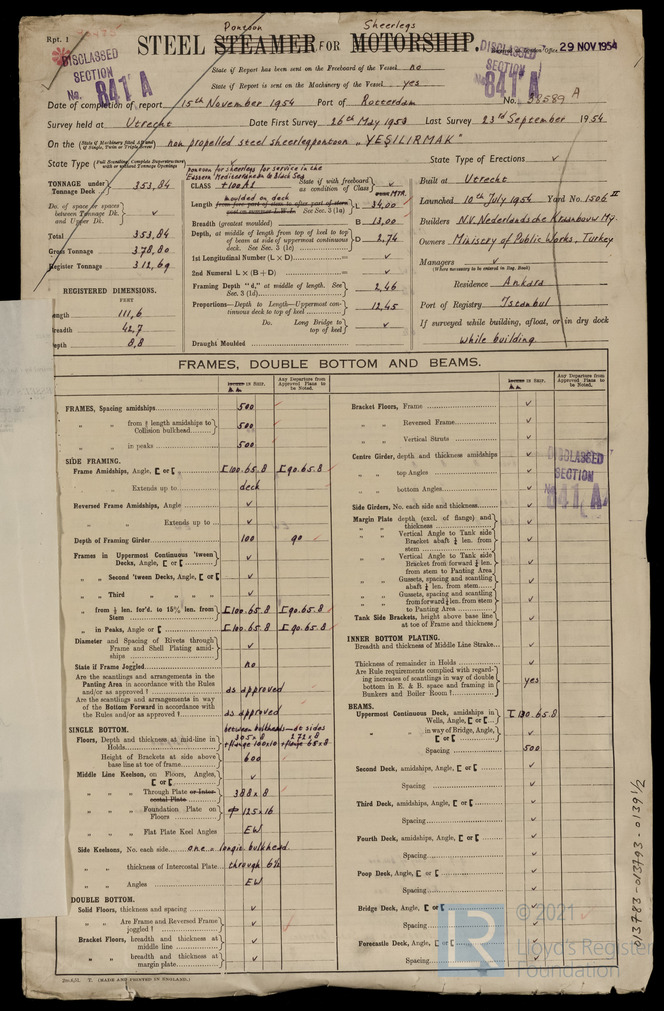 Pontoon Sheerlegs
Rpt. 1
STEEL STEAMER FOR MOTORSHIP.
29 NOV 1954
DISCLASSED
SECTION
No. 841 A
DISCLASSED
SECTION
No. 841 A
State if Report has been sent on the Freeboard of the Vessel no
State if Report is sent on the Machinery of the Vessel yes
Date of completion of report 15th November 1954 Port of Rotterdam No. 38589 A
Survey held at Utrecht Date First Survey 26th May 1953 Last Survey 23rd September 1954
On the (State if Machinery fitted Aft and if Single, Twin or Triple Screw) non propelled steel sheerlegpontoon „YEŞILIRMAK"
State Type (Full Scantling, Complete Superstructure with or without Tonnage Openings) pontoon for sheerlegs for service in the Eastern Mediterranean & Black Sea
State Type of Erections ✓
TONNAGE under Tonnage Deck 353,84
Do. of space or spaces between Tonnage Dk. and Upper Dk. ✓
Total 353,84
Gross Tonnage 378,80
Register Tonnage 312,69
REGISTERED DIMENSIONS.
FEET
Length 111,6
Breadth 42,7
Depth 8,8
CLASS +100A1 State if with freeboard as condition of Class ✓
moulded on deck
Length from fore part of stem to after part of stern post on summer L.W.L. See Sec. 3 (1a) L 34,00
Breadth (greatest moulded) B 13,00
Depth, at middle of length from top of keel to top of beam at side of uppermost continuous deck. See Sec. 3 (1c) D 2,74
1st Longitudinal Number (L × D) ✓
2nd Numeral L × (B + D) ✓
Framing Depth "d," at middle of length. See Sec. 3 (1d) 2,46
Proportions—Depth to Length—Uppermost continuous deck to top of keel 12,45
Do. Long Bridge to top of keel ✓
Draught Moulded
Built at Utrecht
Launched 10th July 1954 Yard No. 1506 II
Builders N.V. Nederlandsche Kraanbouw My.
Owners Ministry of Public Works, Turkey
Managers ✓
(Where necessary to be entered in Reg. Book)
Residence Ankara
Port of Registry Istanbul
If surveyed while building, afloat, or in dry dock
while building
FRAMES, DOUBLE BOTTOM AND BEAMS.
Any Departure from Approved Plans to be Noted.
Any Departure from Approved Plans to be Noted.
FRAMES, Spacing amidships 500
„ „ from ⅕ length amidships to Collision bulkhead 500
„ „ in peaks 500
SIDE FRAMING.
Frame Amidships, Angle, [ or [ [100.65.8 [90.65.8
„ „ Extends up to deck
Reversed Frame Amidships, Angle ✓
„ „ Extends up to ✓
Depth of Framing Girder 100 90
Frames in Uppermost Continuous 'tween Decks, Angle, [ or [ ✓
„ „ Second 'tween Decks, Angle, [ or [ ✓
„ „ Third „ „ „ „ ✓
„ „ from ⅕ len. for'd. to 15% len. from Stem [100.65.8 [90.65.8
„ „ in Peaks, Angle or [ [100.65.8 [90.65.8
Diameter and Spacing of Rivets through Frame and Shell Plating amidships ✓
State if Frame Joggled no
Are the scantlings and arrangements in the Panting Area in accordance with the Rules and/or as approved ? as approved
Are the scantlings and arrangements in way of the Bottom Forward in accordance with the Rules and/or as approved ? as approved
SINGLE BOTTOM. between bulkheads — at sides
Floors, Depth and thickness at mid-line in Holds 305 x 8 272 x 8
+ flange 100x10 + flange 65x8
Height of Brackets at side above base line at toe of frame 600
Middle Line Keelson, on Floors, Angles, [ or [ ✓
„ „ „ Through Plate or Intercostal Plate 388 x 8
„ „ „ Foundation Plate on Floors 125 x 16
„ „ „ Flat Plate Keel Angles EW
Side Keelsons, No. each side one = longit. bulkhead
„ „ thickness of Intercostal Plate through 6½
„ „ Angles EW
DOUBLE BOTTOM.
Solid Floors, thickness and spacing ✓
„ „ Are Frame and Reversed Frame joggled ? ✓
Bracket Floors, breadth and thickness at middle line ✓
„ „ breadth and thickness at margin plate ✓
Bracket Floors, Frame ✓
„ „ Reversed Frame ✓
„ „ Vertical Struts ✓
Centre Girder, depth and thickness amidships ✓
„ „ top Angles ✓
„ „ bottom Angles ✓
DISCLASSED
SECTION
No. 841 A
Side Girders, No. each side and thickness ✓
Margin Plate depth (excl. of flange) and thickness ✓
„ „ Vertical Angle to Tank side Bracket abaft ¼ len. from stem ✓
„ „ Vertical Angle to Tank side Bracket from forward ¼ len. from stem to Panting Area ✓
„ „ Gussets, spacing and scantling abaft ¼ len. from stem ✓
„ „ Gussets, spacing and scantling from forward ¼ len. from stem to Panting Area ✓
Tank Side Brackets, height above base line at toe of Frame and thickness ✓
INNER BOTTOM PLATING.
Breadth and thickness of Middle Line Strake ✓
Thickness of remainder in Holds ✓
Are Rule requirements complied with regarding increases of scantlings in way of double bottom in E. & B. space and framing in Bunkers and Boiler Room ? yes
BEAMS.
Uppermost Continuous Deck, amidships in Wells, Angle, [ or [ [130.65.8
„ „ in way of Bridge, Angle, [ or [ ✓
Spacing 500
Second Deck, amidships, Angle, [ or [ ✓
Spacing ✓
Third Deck, amidships, Angle, [ or [ ✓
Spacing ✓
Fourth Deck, amidships, Angle, [ or [ ✓
Spacing ✓
Poop Deck, Angle, [ or [ ✓
Spacing ✓
Bridge Deck, Angle, [ or [ ✓
Spacing ✓
Forecastle Deck, Angle, [ or [ ✓
Spacing ✓
T. (MADE AND PRINTED IN ENGLAND.)
013783-013793-0139 1/2
LR
© 2021
Lloyd's Register
Foundation